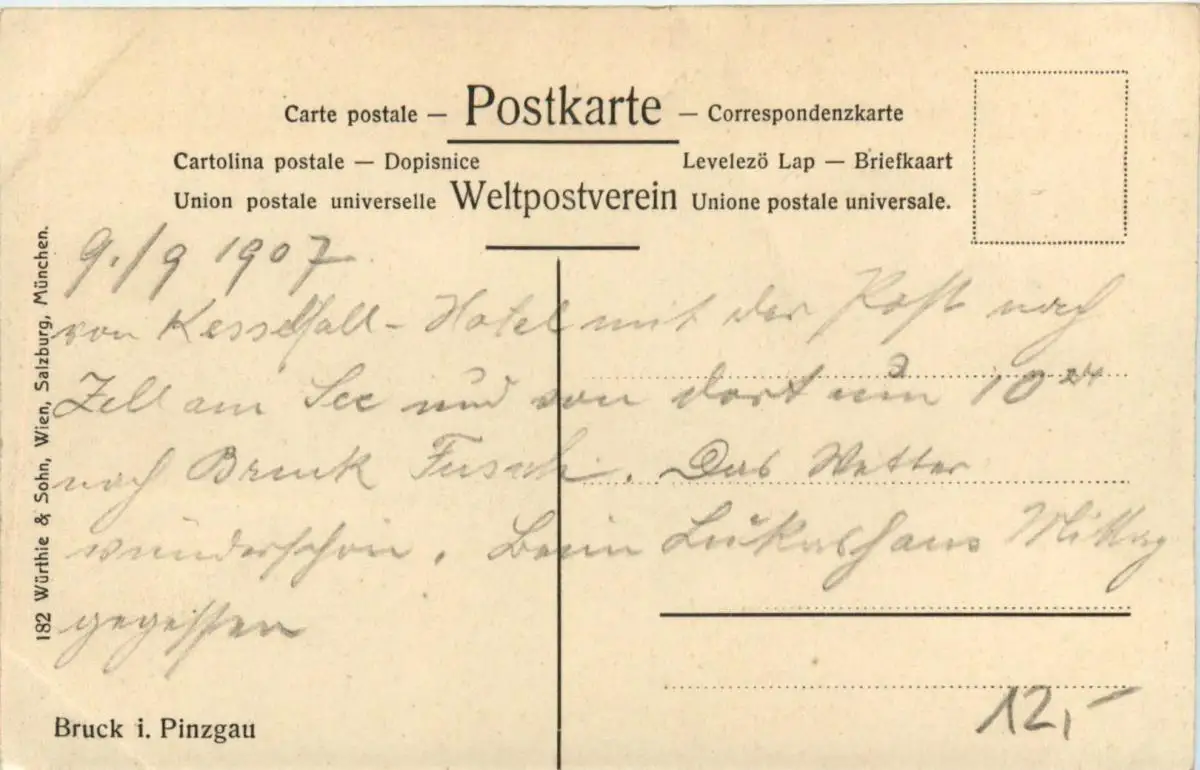 Carte postale — Postkarte — Correspondenzkarte
Cartolina postale — Dopisnice Levelezö Lap — Briefkaart
Union postale universelle Weltpostverein Unione postale universale.
9./9 1907
von Kesselfall-Hotel mit der Post nach
Zell am See und von dort um 10 24
nach Bruck Fusch. Das Wetter
wunderschön. Beim Lukashans Mittag
gegessen
182 Würthle & Sohn, Wien, Salzburg, München.
Bruck i. Pinzgau
12,-